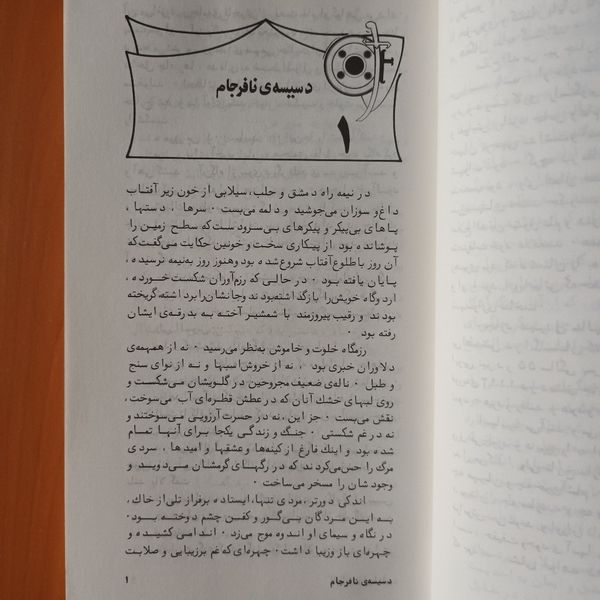 دسیسه‌ی نافرجام
۱
در نیمه راه دمشق و حلب، سیلابی از خون زیر آفتاب
داغ و سوزان می‌جوشید و دلمه می‌بست. سرها، دستها،
پاهای بی‌پیکر و پیکرهای بی‌سرودست که سطح زمین را
پوشانده بود از پیکاری سخت و خونین حکایت می‌گفت که
آن روز با طلوع آفتاب شروع شده بود وهنوز روز به‌نیمه نرسیده،
پایان یافته بود. در حالی که رزم‌آوران شکست خورده،
اردوگاه خویش را بازگذاشته‌بودند وجانشان را برداشته‌گریخته
بودند و رقیب پیروزمند با شمشیر آخته به بدرقه‌ی ایشان
رفته بود.
رزمگاه خلوت و خاموش به‌نظر می‌رسید. نه از همهمه‌ی
دلاوران خبری بود، نه از خروش اسبها و نه از نوای سنج
و طبل. ناله‌ی ضعیف مجروحین در گلویشان می‌شکست و
روی لبهای خشك آنان که در عطش قطره‌ای آب می‌سوخت،
نقش می‌بست. جز این، نه در حسرت آرزویی می‌سوختند و
نه در غم شکستی. جنگ و زندگی یکجا برای آنها تمام
شده بود و اینك فارغ از کینه‌ها و عشقها و امیدها، سردی
مرگ را حس می‌کردند که در رگهای گرمشان می‌دوید و
وجودشان را مسخر می‌ساخت.
اندکی دورتر، مردی تنها، ایستاده برفراز تلی از خاك،
به این مردگان بی‌گور و کفن چشم دوخته بود.
در نگاه و سیمای او اندوه موج می‌زد. اندامی کشیده و
چهره‌ای باز وزیبا داشت. چهره‌ای که غم برزیبایی و صلابت
دسیسه‌ی نافرجام
۱